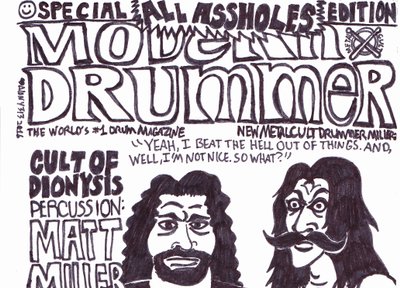 SPECIAL ALL ASSHOLES EDITION
MODERN
DRUMMER
THE WORLD'S #1 DRUM MAGAZINE
NEW METALCULT DRUMMER MILLER:
"YEAH, I BEAT THE HELL OUT OF THINGS. AND,
WELL, I'M NOT NICE. SO WHAT?"
CULT OF
DIONYSIS
PERCUSSION:
MATT
MILLER